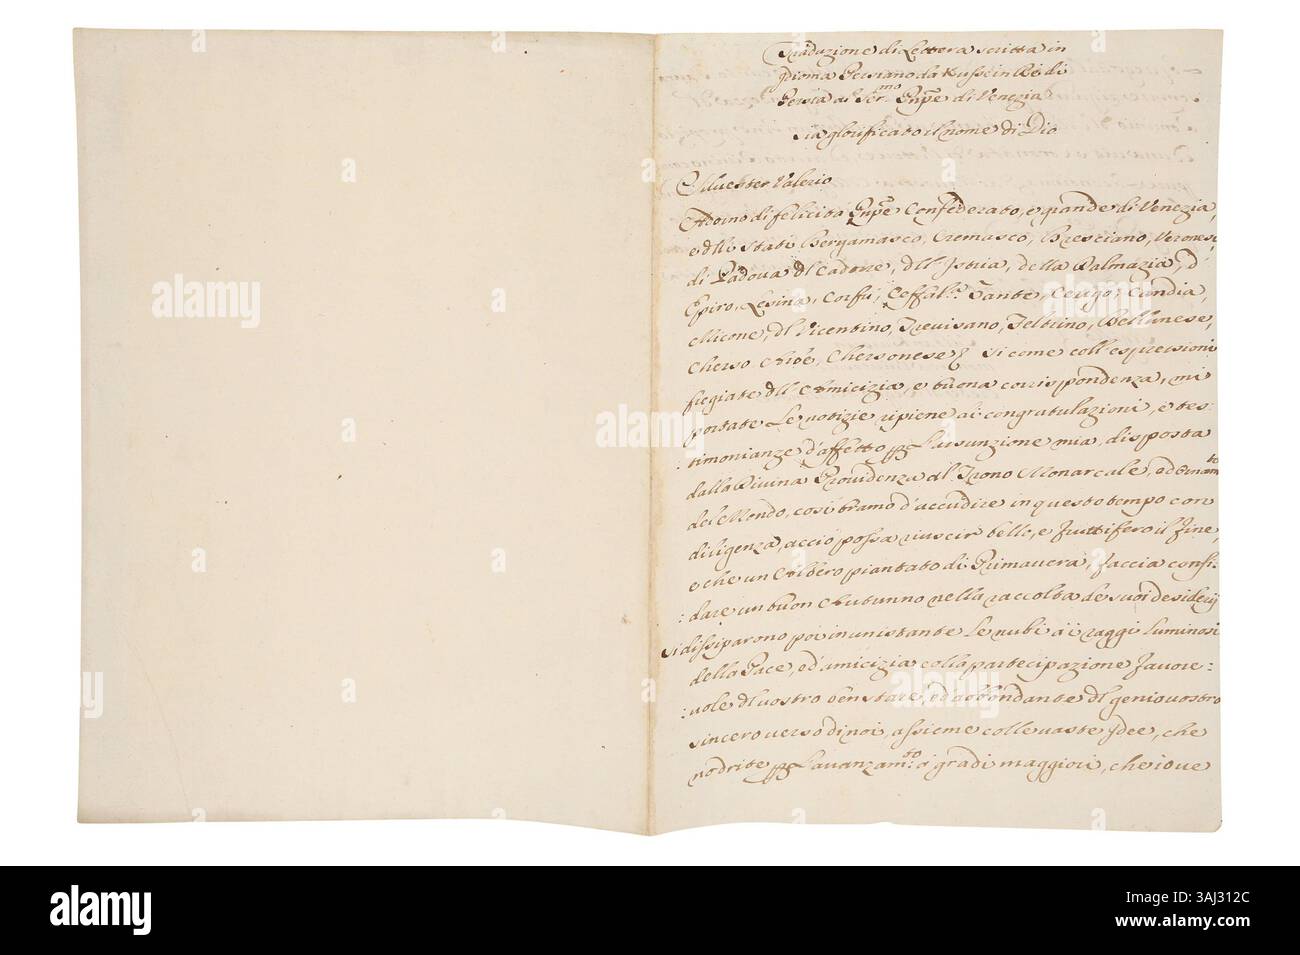 Traduzione di Lettera scritta in
Idioma Persiano da Hussein Re di
Persia al Ser.mo Prnpe di Venezia
Sia glorificato il nome di Dio
Silvester Valerio
Adorno di felicità Prnpe Confederato, e grande di Venezia,
e dlli stati Bergamasco, Cremasco, Bresciano, Veronese,
di Padova dl Cadore, dll'Istria, della Dalmazia, d'
Epiro, Lesina, Corfù, Ceffal.a Zante, Cerigo, Candia,
Micone, dl Vicentino, Trevisano, Feltrino, Bellunese,
Cherso Chersonese Si come coll'espressioni
fregiate dll'Amicizia, e buona corrispondenza, mi
portate le notizie ripiene di congratulazioni, e tes:
:timonianze d'affetto p l'assunzione mia, disposta
dalla Divina Providenza al Trono Monarcale, ed Ornam.to
del Mondo, così bramo d'accudire in questo tempo con
diligenza, acciò possa riuscir bello, e fruttifero il fine,
e che un Albero piantato di Primavera, faccia confi:
:dare un buon Autunno nella raccolta de suoi desiderij
Si dissiparono poi in un istante le nubi ai raggi luminosi
della Pace, ed'amicizia colla partecipazione favore:
:vole dl vostro ben stare, ed abbondante dl genio vostro
sincero verso di noi, assieme colle vaste Idee, che
nodrite p l'avanzam.to a' gradi maggiori, che ive
alamy
Image ID: 2AJ312C
www.alamy.com